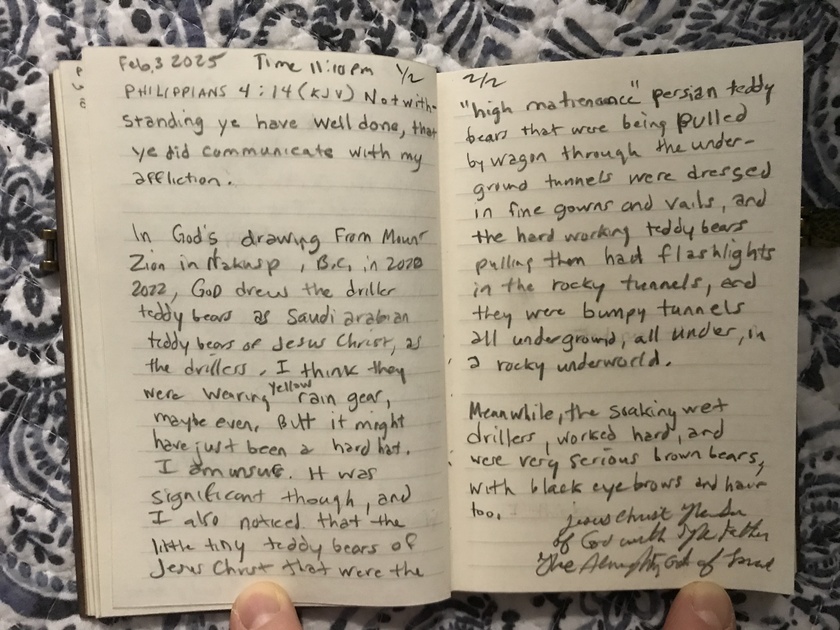 Feb, 3 2025 Time 11:10 pm 1/2
PHILIPPIANS 4:14 (KJV) Notwith-
standing ye have well done, that
ye did communicate with my
affliction.
In God's drawing From Mount
Zion in Nakusp, B.C, in 2020
2022, GOD drew the driller
teddy bears as Saudi arabian
teddy bears of Jesus Christ, as
the drillers, I think they
were wearing yellow rain gear,
maybe even, Butt it might
have just been a hard hat.
I am unsue. It was
significant though, and
I also noticed that the
little tiny teddy bears of
Jesus Christ that were the
2/2
"high matienance" persian teddy
bears that were being pulled
by wagon through the under-
ground tunnels were dressed
in fine gowns and vails, and
the hard working teddy bears
pulling them had flashlights
in the rocky tunnels, and
they were bumpy tunnels
all underground, all under, in
a rocky underworld.
Meanwhile, the soaking wet
drillers, worked hard, and
were very serious brown bears,
with black eye brows and hair
too.
Jesus Christ
of God with Father
The Almighty God of Israel